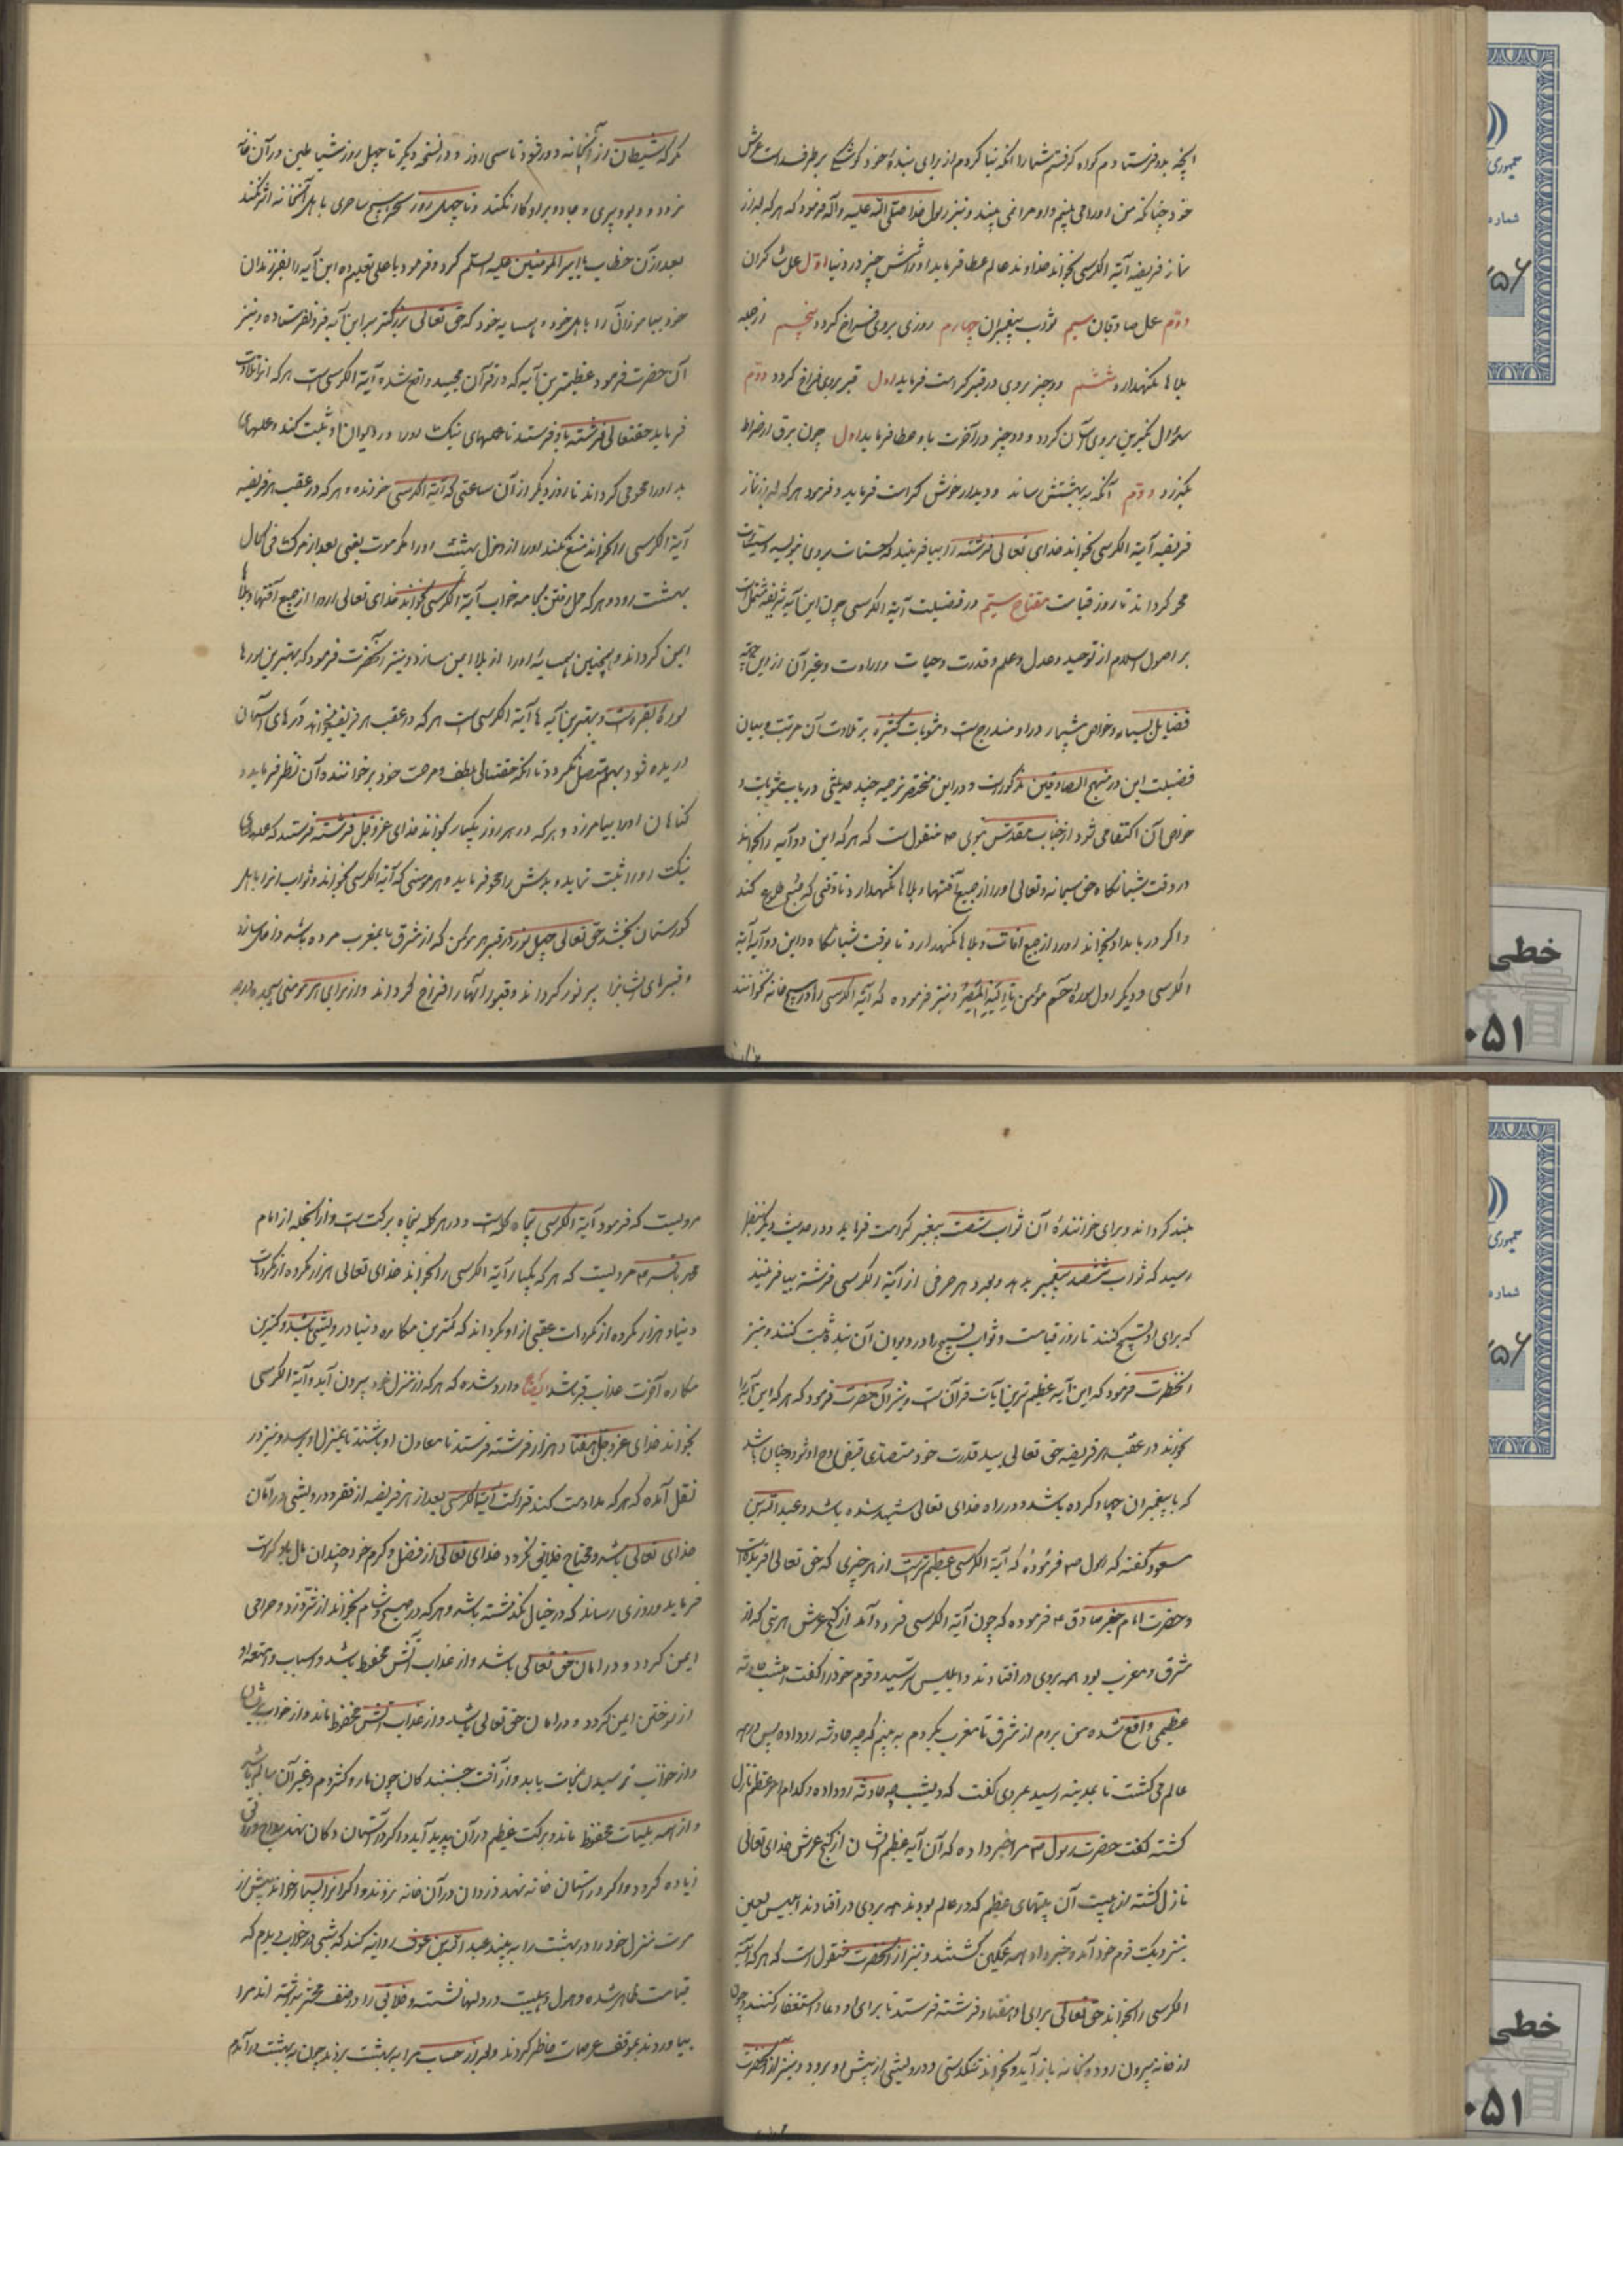 آنچه بدو فرستادم گواه گرفتم شما را آنکه بنا کردم از برای بنده خود کوشکی برطرف راست عرش
خود چنانکه من او را می بینم و او مرا نمی بیند و نیز رسول خدا صلی الله علیه و آله فرمود که هر که بعد از
نماز فریضه آیة الکرسی بخواند خداوند عالم عطا فرماید او را شش چیز در دنیا اول عمل شاکران
دوم عمل صادقان سیم ثواب پیغمبران چهارم روزی بروی فراخ گردد پنجم از جمله
بلاها نگهدارد ششم دو چیز بروی در قبر کرامت فرماید اول قبر بروی فراخ گردد دوم
سؤال نکیرین بروی آسان گردد و دو چیز در آخرت باو عطا فرماید اول چون برق از صراط
بگذرد دوم آنکه به بهشتش رساند و دیدار خوش کرامت فرماید و فرمود هر که بعد از نماز
فریضه آیة الکرسی بخواند خدای تعالی فرشته را بیافریند که حسنات بروی نویسد و سیئات
محو گرداند تا روز قیامت مفتاح سیم در فضیلت آیة الکرسی چون این آیه شریفه مشتمل است
بر اصول اسلام از توحید و عدل و علم و قدرت و حیات و ارادت و غیر آن از این جهة
فضایل بسیار و خواص بیشمار در او مندرج است و مثوبات کثیره بر تلاوت آن مرتب و بیان
فضیلت این در منهج الصادقین مذکور است و در این مختصر ترجمه چند حدیثی در باب مثوبات و
خواص آن اکتفا می شود از جناب مقدس نبوی ص منقول است که هر که این دو آیه را بخواند
در وقت شبانگاه حق سبحانه و تعالی او را از جمیع آفتها و بلاها نگهدارد تا وقتی که صبح طلوع کند
و اگر در بامداد بخواند او را از جمیع آفات و بلاها نگهدارد تا بوقت شبانگاه و این دو آیه آیة
الکرسی و دیگر اول سوره حم مؤمن تا الیه المصیر و نیز فرموده که آیة الکرسی را در هیچ خانه نخوانند
مگر که شیطان از آنخانه دور شود تا سی روز و در نسخه دیگر تا چهل روز شیاطین در آن خانه
نرود و دیو و پری و جادو بر او کار نکند و تا چهل روز سحر هیچ ساحری با هل آنخانه اثر نکند
بعد از آن خطاب با امیرالمؤمنین علیه السلم کرد و فرمود یا علی تعلیم ده این آیه را بفرزندان
خود بیاموزان را باهل خود و همسایه خود که حق تعالی بزرگتر بر این آیه فرو نفرستاده و نیز
آن حضرت فرمود عظیمترین آیه که در قرآن مجید واقع شده آیة الکرسی است هر که آنرا تلاوت
فرماید حقتعالی فرشته باو فرستد تا عملهای نیک او را در دیوان او ثبت کند و عملهای
بد او را محو می گرداند تا روز دیگر از آن ساعتی که آیة الکرسی خوانده و هر که در عقب هر فریضه
آیة الکرسی را بخواند منع نکند او را از دخول بهشت او را مگر موت یعنی بعد از مرگ فی الحال
بهشت رود و هر که محل رفتن بجامه خواب آیة الکرسی بخواند خدای تعالی او را از جمیع آفتها و بلاها
ایمن گرداند و همچنین همسایه او را از بلا ایمن سازد و نیز آنحضرت فرمود که بهترین سوره ها
سوره بقره است و بهترین آیه ها آیة الکرسی است هر که در عقب هر فریضه بخواند درهای آسمان
دریده شود بهم متصل نگردد تا آنکه حقتعالی بلطف و مرحمت خود بر خواننده آن نظر فرماید و
گناهان او را بیامرزد و هر که در هر روز یکبار بخواند خدای عز و جل فرشته فرستد که عملهای
نیک او را ثبت نماید و بدش را محو فرماید و هر مومنی که آیة الکرسی بخواند و ثواب آنرا باهل
گورستان بخشد حق تعالی چهل نور در قبر هر مؤمن که از مشرق تا بمغرب مرده باشد داخل سازد
و قبرهای ایشان را پر نور گرداند و قبور آنها را فراخ گرداند و از برای هر مومنی
بلند گرداند و برای خواننده آن ثواب شصت پیغمبر کرامت فرماید و در حدیث دیگر بنظر
رسید که ثواب ششصد پیغمبر بدهد و بعدد هر حرفی از آیة الکرسی فرشته بیافریند
که برای او تسبیح کنند تا روز قیامت و ثواب تسبیح را در دیوان آن بنده ثبت کنند و نیز
آنحضرت فرمود که این آیه عظیم ترین آیات قرآن است و نیز آن حضرت فرمود که هر که این آیه را
بخواند در عقب هر فریضه حق تعالی بید قدرت خود متصدی قبض روح او شود و چنان باشد
که با پیغمبران جهاد کرده باشد و در راه خدای تعالی شهید شده باشد و عبد الله بن
مسعود گفته که رسول ص فرموده که آیة الکرسی عظیم تر است از هر چیزی که حق تعالی آفریده است
و حضرت امام جعفر صادق ع فرموده که چون آیة الکرسی فرود آمد از کنج عرش هر بتی که از
مشرق و مغرب بود همه بروی در افتادند و ابلیس ترسید و قوم خود را گفت امشب حادثه
عظیمی واقع شده من بروم از مشرق تا مغرب بگردم به بینم که چه حادثه رو داده پس در همه
عالم می گشت تا بمدینه رسید بمردی گفت که دیشب چه حادثه رو داده و کدام امر عظیم نازل
گشته گفت حضرت رسول ص مرا خبر داده که آن آیه عظیم الشان از کنج عرش خدای تعالی
نازل گشته از هیبت آن بتهای عظیم که در عالم بودند همه بروی در افتادند ابلیس لعین
بنزدیک قوم خود آمد و خبر داد همه غمگین گشتند و نیز از آنحضرت منقول است که هر که آیة
الکرسی را بخواند حق تعالی برای او هفتاد فرشته فرستد تا برای او دعا و استغفار کنند و چون
از خانه بیرون رود و بخانه باز آید و بخواند تنگدستی و درویشی از پیش او برود و نیز از آنحضرت
مرویست که فرمود آیة الکرسی پنجاه کلمه است و در هر کلمه پنجاه برکت است و از آنجمله از امام
محمد باقر ع مرویست که هر که یکبار آیة الکرسی را بخواند خدای تعالی هزار مکروه از مکروهات
دنیا و هزار مکروه از مکروهات عقبی از او بگرداند که کمترین مکاره دنیا درویشی باشد و کمترین
مکاره آخرت عذاب قبر باشد ایضا وارد شده که هر که از منزل خود بیرون آید و آیة الکرسی
بخواند خدای عز و جل هفتاد هزار فرشته فرستد تا معاون او باشند تا بمنزل او برسد و نیز در
نقل آمده که هر که مداومت کند قرائت آیة الکرسی بعد از هر فریضه از فقر و درویشی در امان
خدای تعالی باشد و محتاج خلایق نگردد خدای تعالی از فضل و کرم خود چندان مال باو کرامت
فرماید و روزی رساند که در خیال نگذشته باشد و هر که در صبح و شام بخواند از شر دزد و حرامی
ایمن گردد و در امان حق تعالی باشد و از عذاب آتش محفوظ باشد و اسباب و امتعه او
از سوختن ایمن گردد و در امان حق تعالی باشد و از عذاب آتش محفوظ ماند و از خواب پریشان
و از خواب ترسیدن نجات یابد و از آفت جنبندگان چون مار و کژدم و غیر آن سالم باشد
و از همه بلیات محفوظ ماند و برکت عظیم در آن پدید آید و اگر در آستان دکان نهد
زیاده گردد و اگر در آستان خانه نهد دزدان در آن خانه نروند و اگر آنرا بسیار خواند پیش از
مرگ منزل خود را در بهشت را به بیند عبد الله بن عوف روایت کند که شبی در خواب دیدم که
قیامت ظاهر شده و هول و هیبت در دلها نشسته و خلایق رو در صف محشر نهاده اند مرا
بیاوردند بموقف عرصات حاضر کردند و بعد از حساب مرا به بهشت بردند چون به بهشت در آمدم
جمهوری
شماره
خطی
۰۵۱
جمهوری
شماره
خطی
۰۵۱